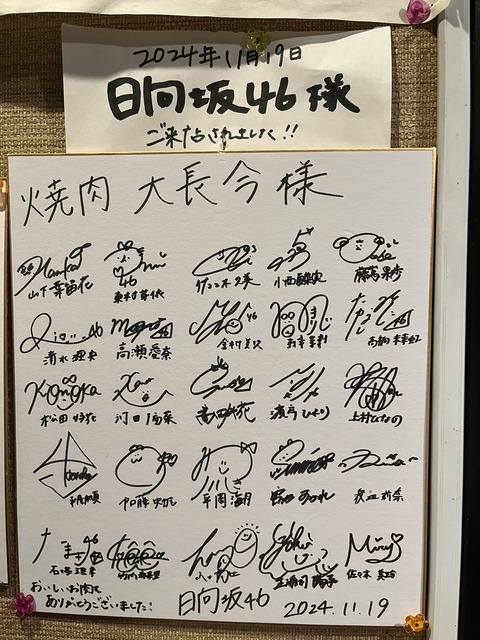 2024年11月19日
日向坂46様
ご来店されました!!
焼肉 大長今様
山下葉留花 東村芽依 佐々木久美 小西夏菜実 藤嶌果歩
清水理央 高瀬愛奈 金村美玖 髙橋未来虹
松田好花 河田陽菜 富田鈴花 濱岸ひより 上村ひなの
加藤史帆 平岡海月 宮地すみれ 渡辺莉奈
石塚瑶季 正源司陽子 佐々木美玲
おいしいお肉を
ありがとうございました!
日向坂46 2024.11.19